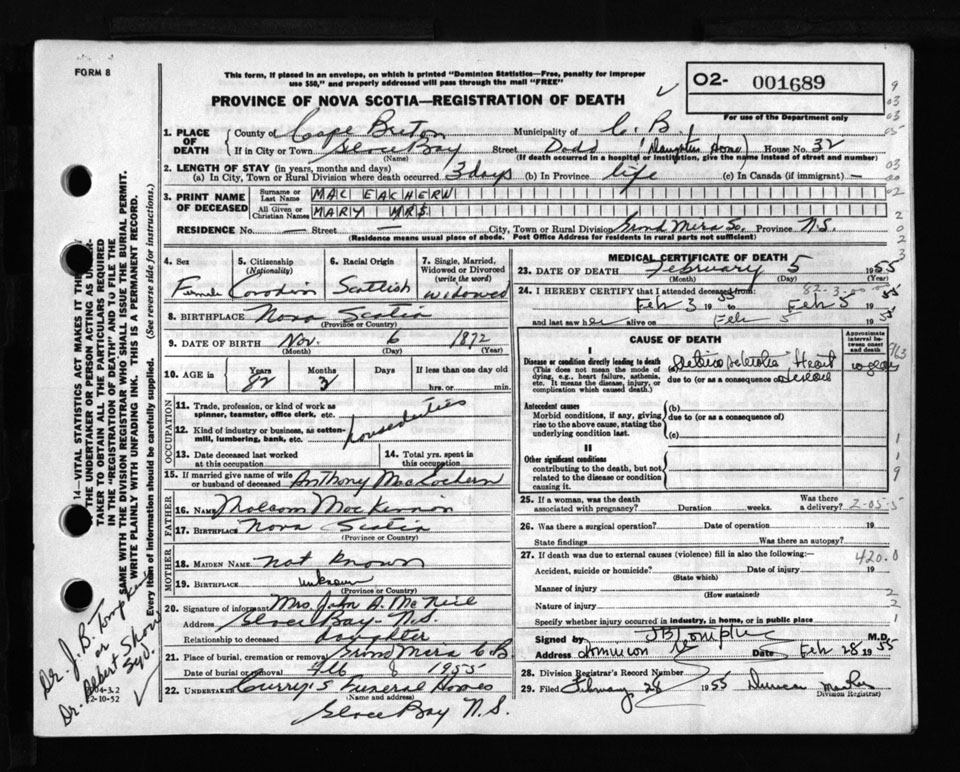 FORM 8
This form, if placed in an envelope, on which is printed "Dominion Statistics—Free, penalty for improper
use $50," and properly addressed will pass through the mail "FREE"
PROVINCE OF NOVA SCOTIA—REGISTRATION OF DEATH
O2- 001689
For use of the Department only
1. PLACE OF DEATH
County of Cape Breton Municipality of C. B.
If in City or Town Glace Bay Street Dodd (Daughters Home) House No. 32
(Name) (If death occurred in a hospital or institution, give the name instead of street and number)
2. LENGTH OF STAY (in years, months and days)
(a) In City, Town or Rural Division where death occurred 3 days (b) In Province life (c) In Canada (if immigrant) —
3. PRINT NAME OF DECEASED
Surname or Last Name MAC EACHERN
All Given or Christian Names MARY MRS.
RESIDENCE No. — Street — City, Town or Rural Division Grand Mira So. Province N.S.
(Residence means usual place of abode. Post Office Address for residents in rural parts not sufficient)
4. Sex Female
5. Citizenship (Nationality) Canadian
6. Racial Origin Scottish
7. Single, Married, Widowed or Divorced (write the word) widowed
8. BIRTHPLACE Nova Scotia
(Province or Country)
9. DATE OF BIRTH Nov. 6 1872
(Month) (Day) (Year)
10. AGE in Years 82 Months 3 Days If less than one day hrs. or min.
OCCUPATION
11. Trade, profession, or kind of work as spinner, teamster, office clerk, etc.
12. Kind of industry or business, as cotton-mill, lumbering, bank, etc.
house duties
13. Date deceased last worked at this occupation
14. Total yrs. spent in this occupation
15. If married give name of wife or husband of deceased Anthony MacEachern
FATHER
16. NAME Malcom MacKinnon
17. BIRTHPLACE Nova Scotia
(Province or Country)
MOTHER
18. MAIDEN NAME not known
19. BIRTHPLACE unknown
(Province or Country)
20. Signature of informant Mrs. John A. McNeil
Address Glace Bay - N.S.
Relationship to deceased daughter
21. Place of burial, cremation or removal Grand Mira C.B.
Date of burial or removal Feb 8 1955
22. UNDERTAKER Curry's Funeral Home
(Name and address)
Glace Bay N.S.
MEDICAL CERTIFICATE OF DEATH
23. DATE OF DEATH February 5 1955
(Month) (Day) (Year)
24. I HEREBY CERTIFY that I attended deceased from
82-3-
Feb 3 1955 Feb 5 1955
and last saw her alive on Feb 5 1955
CAUSE OF DEATH
Approximate interval between onset and death
I
Disease or condition directly leading to death
(This does not mean the mode of dying, e.g., heart failure, asthenia, etc. It means the disease, injury, or complication which caused death.)
(a) Heart
due to (or as a consequence of)
Antecedent causes
Morbid conditions, if any, giving rise to the above cause, stating the underlying condition last.
(b)
due to (or as a consequence of)
(c)
II
Other significant conditions
contributing to the death, but not related to the disease or condition causing it.
25. If a woman, was the death associated with pregnancy? Duration weeks. Was there a delivery? 2-05-5
26. Was there a surgical operation? Date of operation 19
State findings Was there an autopsy?
27. If death was due to external causes (violence) fill in also the following: 420.0
Accident, suicide or homicide? Date of injury 19
(State which)
Manner of injury
(How sustained)
Nature of injury
Specify whether injury occurred in industry, in home, or in public place
Signed by JB Tompkins M.D.
Address Dominion Date Feb 28 1955
28. Division Registrar's Record Number
29. Filed February 28 1955 Duncan
(Division Registrar)
14—VITAL STATISTICS ACT MAKES IT THE DUTY OF THE UNDERTAKER OR PERSON ACTING AS UNDERTAKER TO OBTAIN ALL THE PARTICULARS REQUIRED IN THE "REGISTRATION OF DEATH" AND TO FILE THE SAME WITH THE DIVISION REGISTRAR WHO SHALL ISSUE THE BURIAL PERMIT.
WRITE PLAINLY WITH UNFADING INK. THIS IS A PERMANENT RECORD.
Every item of information should be carefully supplied. (See reverse side for instructions.)
Dr. J. B. Tompkins
or
Dr. Albert Shaw
Syd.